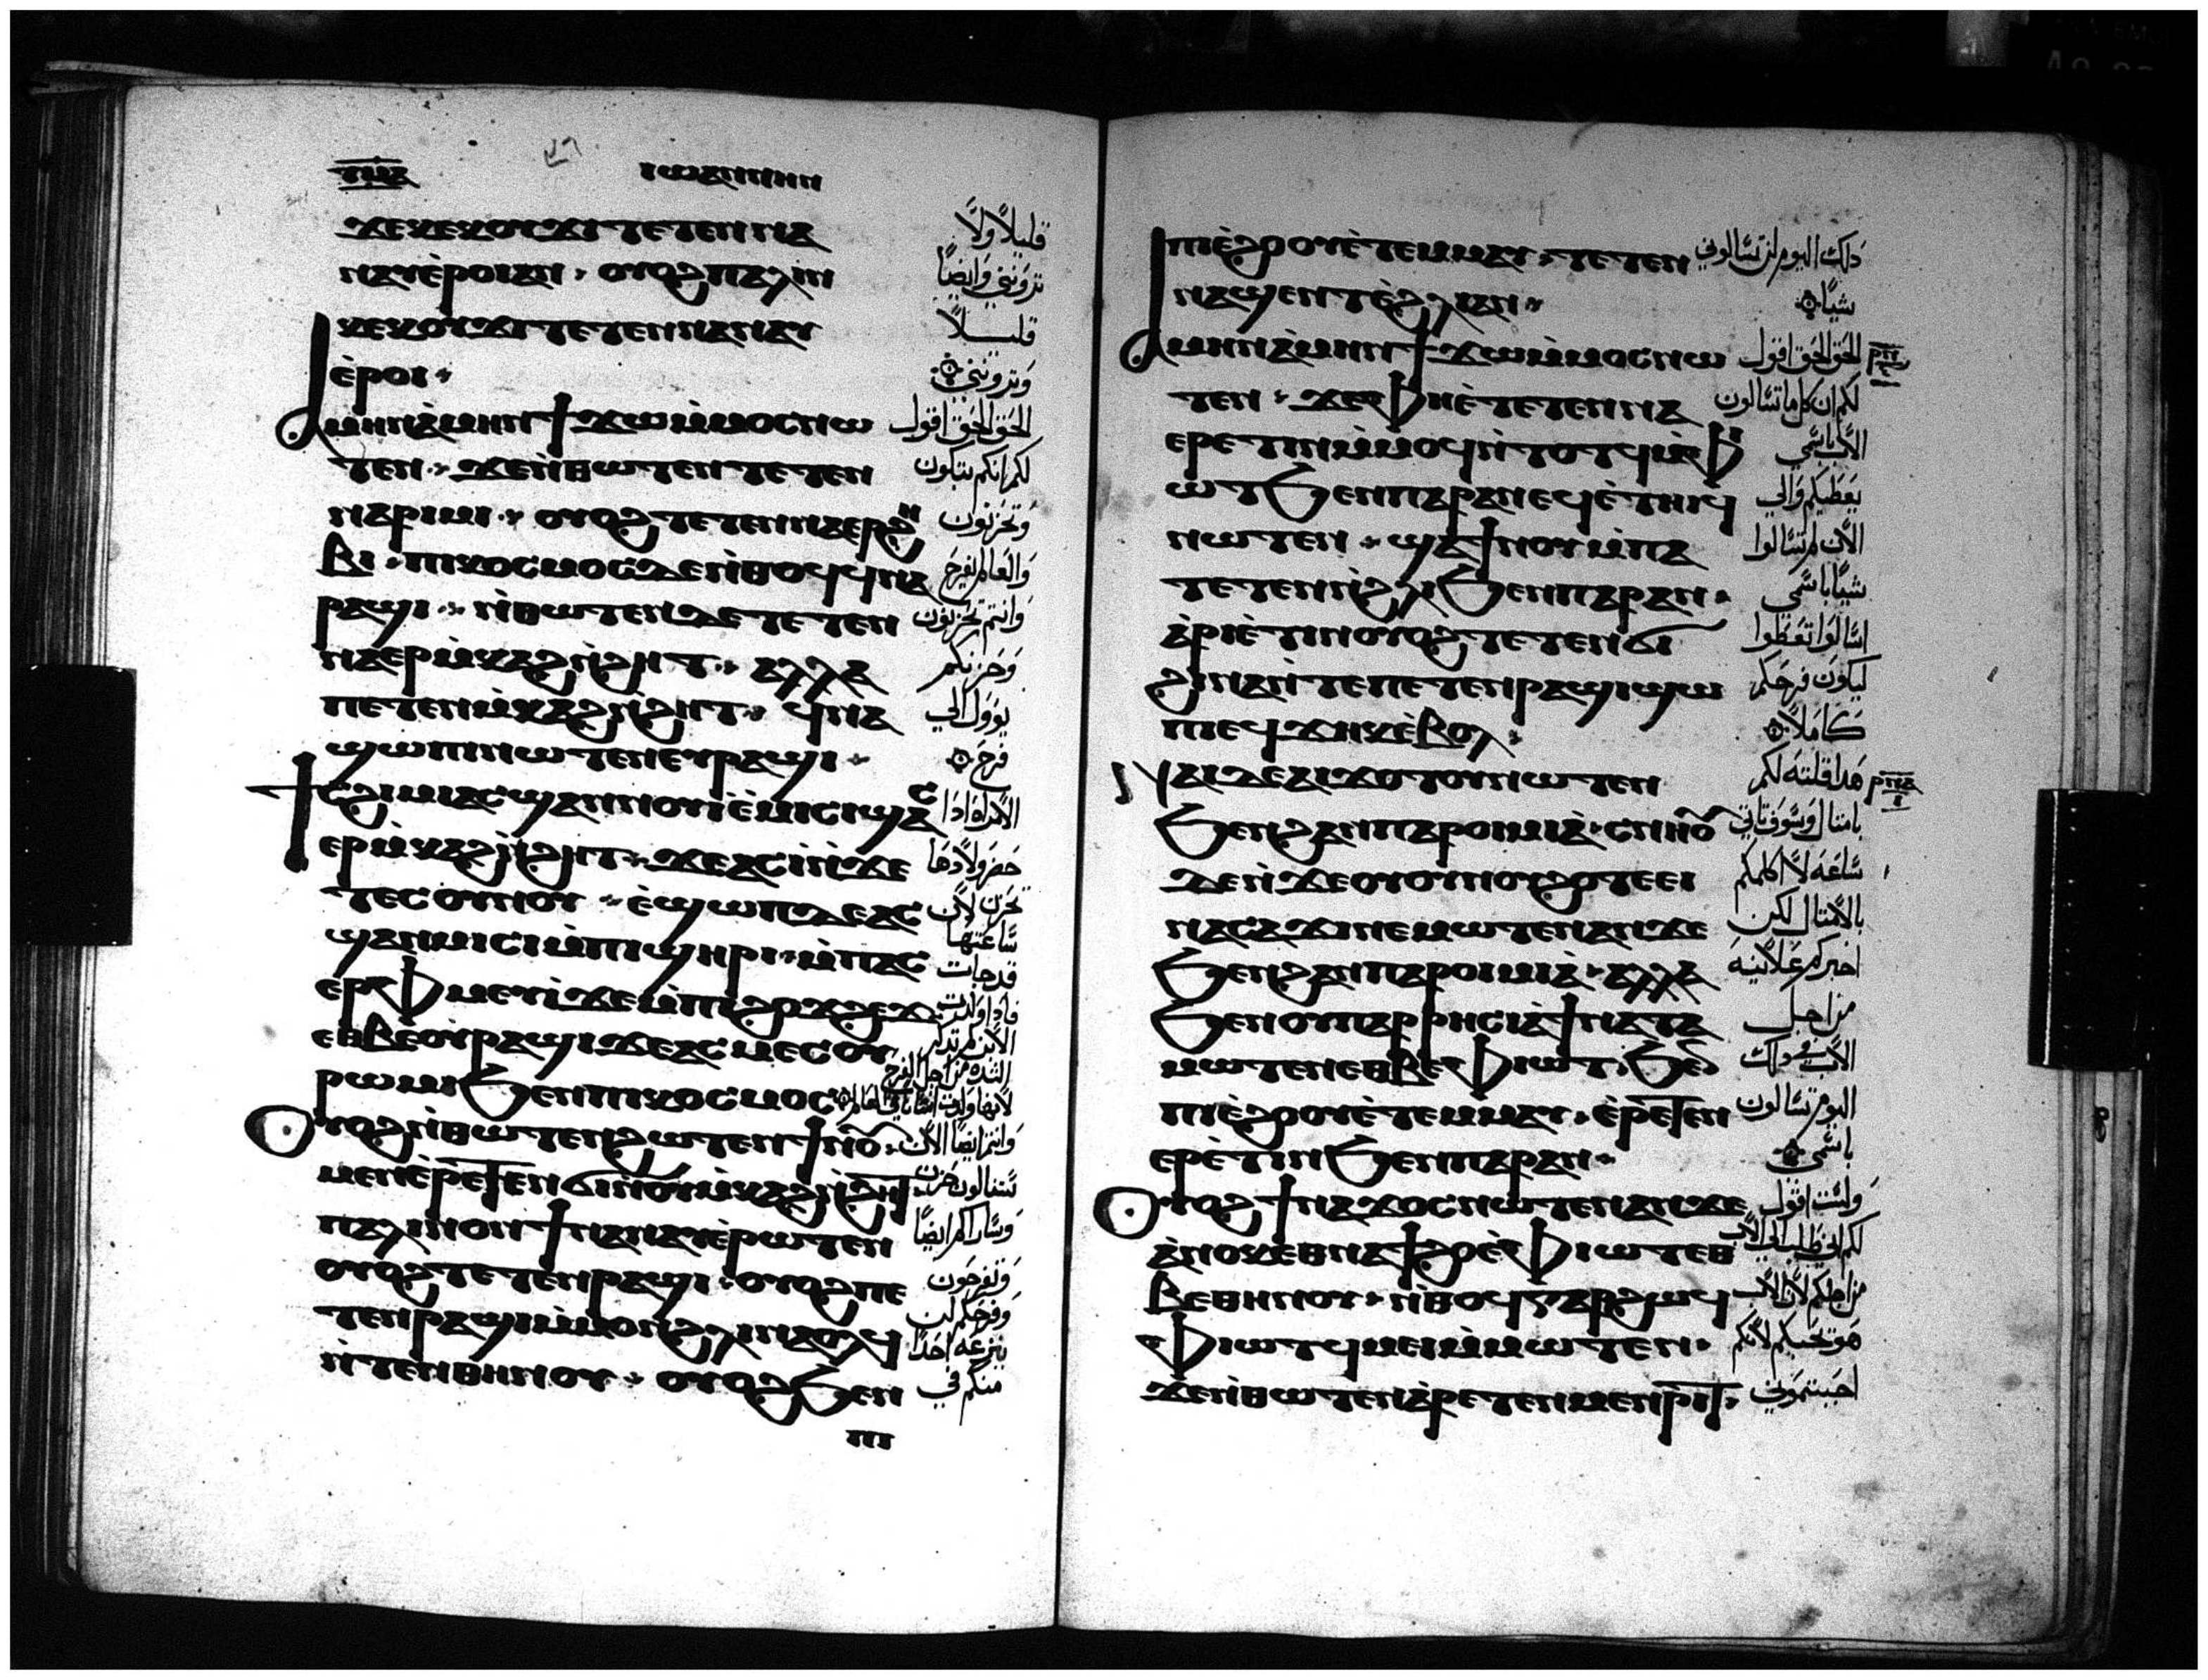 ⲧⲙⲁ
ⲓⲱⲁⲛⲛⲏⲛ
ϫⲉⲕⲉⲕⲟⲩϫⲓ ⲧⲉⲧⲉⲛⲛⲁ
ⲛⲁⲩⲉ̀ⲣⲟⲓⲁⲛ · ⲟⲩⲟϩⲡⲁⲗⲓⲛ
ⲕⲉⲕⲟⲩϫⲓ ⲧⲉⲧⲉⲛⲛⲁⲛⲁⲩ
ⲉ̀ⲣⲟⲓ
ⲁⲙⲏⲛⲁ̀ⲙⲏⲛϯϫⲱⲙ̀ⲙⲟⲥⲛⲱ
ⲧⲉⲛ · ϫⲉⲛ̀ⲑⲱⲧⲉⲛ ⲧⲉⲧⲉⲛ
ⲛⲁⲣⲓⲙⲓ · ⲟⲩⲟϩ ⲧⲉⲧⲉⲛⲛⲁⲉⲣϩⲏ
ⲃⲓ · ⲡⲓⲕⲟⲥⲙⲟⲥⲇⲉⲛ̀ⲑⲟϥϥⲛⲁ
ⲣⲁϣⲓ · ⲛ̀ⲑⲱⲧⲉⲛⲇⲉ ⲧⲉⲧⲉⲛ
ⲛⲁⲉⲣⲙ̀ⲕⲁϩⲛ̀ϩⲏⲧ · ⲁⲗⲗⲁ
ⲡⲉⲧⲉⲛⲙ̀ⲕⲁϩⲛ̀ϩⲏⲧ · ϥⲛⲁ
ϣⲱⲡⲓⲛⲱⲧⲉⲛⲉⲩⲣⲁϣⲓ ·
ϯⲥϩⲓⲙⲓⲁⲥϣⲁⲛⲛⲟⲩⲓ̀ⲉ̀ⲙⲓⲥⲓϣⲁⲥ
ⲉⲣⲙ̀ⲕⲁϩⲛ̀ϩⲏⲧ · ϫⲉⲁⲥⲓ̀ⲛ̀ϫⲉ
ⲧⲉⲥⲟⲩⲛⲟⲩ · ⲉ̀ϣⲱⲡⲇⲉⲁⲥ
ϣⲁⲛⲙⲓⲥⲓⲙ̀ⲡⲓϣⲏⲣⲓ · ⲙ̀ⲡⲁⲥ
ⲉⲣⲫⲙⲉⲩⲓ̀ϫⲉⲙ̀ⲡⲓϩⲟϫϩⲉϫ
ⲉⲑⲃⲉⲟⲩⲣⲁϣⲓϫⲉⲁⲥⲙⲉⲥⲟⲩ
ⲣⲱⲙⲓϧⲉⲛⲡⲓⲕⲟⲥⲙⲟⲥ
ⲟⲩⲟϩⲛ̀ⲑⲱⲧⲉⲛϩⲱⲧⲉⲛϯⲛⲟ̄ ·
ⲙⲉⲛⲉ̀ⲣⲉⲧⲉⲛϭⲓⲛⲟⲩⲙ̀ⲕⲁϩⲛ̀ϩⲏⲧ
ⲡⲁⲗⲓⲛⲟⲛϯⲛⲁⲛⲁⲩⲉ̀ⲣⲱⲧⲉⲛ
ⲟⲩⲟϩⲧⲉⲧⲉⲛⲣⲁϣⲓ · ⲟⲩⲟϩⲡⲉ
ⲧⲉⲛⲣⲁϣⲓⲙ̀ⲙⲟⲛϩⲗⲓⲛⲁⲟⲗϥ
ⲛ̀ⲧⲉⲛⲑⲏⲛⲟⲩ · ⲟⲩⲟϩϧⲉⲛ
ⲡⲓ
قليلاً ولا
تروني وايضاً
قليلاً
وتروني
الحق الحق اقول
لكم انكم تبكون
وتحزنون
والعالم يفرح
وانتم تحزنون
وحزنكم
يوول الي
فرح
الامراة اذا
حضر ولادها
تحزن لان
ساعتها
قد جات
فاذا ولدت
الابن لم تذكر
الشدة من اجل الفرح
لانها ولدت انسانا في العالم
وانتم ايضا الان
ستنالون حزن
وساراكم ايضاً
وتفرحون
وفرحكم لن
ينزعه احداً
منكم في
ⲡⲓⲉ̀ϩⲟⲟⲩⲉ̀ⲧⲉⲙⲙⲁⲩ · ⲧⲉⲧⲉⲛ
ⲛⲁϣⲉⲛⲧⲉ̀ϩⲗⲓⲁⲛ
ⲁⲙⲏⲛⲁ̀ⲙⲏⲛϯϫⲱⲙ̀ⲙⲟⲥⲛⲱ
ⲧⲉⲛ · ϫⲉⲫⲏⲉ̀ⲧⲉⲧⲉⲛⲛⲁ
ⲉⲣⲉⲧⲓⲛⲙ̀ⲙⲟϥⲛ̀ⲧⲟⲧϥⲙ̀ⲫⲓ
ⲱⲧϧⲉⲛⲡⲁⲣⲁⲛⲉϥⲉ̀ⲧⲏⲓϥ
ⲛⲱⲧⲉⲛ · ϣⲁϯⲛⲟⲩⲙ̀ⲡⲁ
ⲧⲉⲧⲉⲛⲛ̀ϩⲗⲓϧⲉⲛⲡⲁⲣⲁⲛ ·
ⲁ̀ⲣⲓⲉ̀ⲧⲓⲛⲟⲩⲟϩⲧⲉⲧⲉⲛϭⲓ
ϩⲓⲛⲁⲛ̀ⲧⲉⲡⲉⲧⲉⲛⲣⲁϣⲓϣⲱ
ⲡⲓⲉϥϫⲏⲕⲉ̀ⲃⲟⲗ
ⲛⲁⲓⲇⲉⲁⲓϫⲟⲧⲟⲩⲛⲱⲧⲉⲛ
ϧⲉⲛϩⲁⲛⲡⲁⲣⲟⲓⲙⲓⲁ̀ · ⲥⲛⲏⲟ̄
ⲇⲉⲛ̀ϫⲉⲟⲩⲟⲩⲛⲟⲩϩⲟⲧⲉⲉⲓ
ⲛⲁⲥⲁϫⲓⲛⲉⲙⲱⲧⲉⲛⲁⲛϫⲉ
ϧⲉⲛϩⲁⲛⲡⲁⲣⲟⲓⲙⲓⲁ̀ · ⲁⲗⲗⲁ
ϧⲉⲛⲟⲩⲡⲁⲣⲣⲏⲥⲓⲁ̀ϯⲛⲁⲧⲁ
ⲙⲱⲧⲉⲛⲉⲑⲃⲉⲫⲓⲱⲧ · ϧⲉⲛ
ⲡⲓⲉ̀ϩⲟⲟⲩⲉ̀ⲧⲉⲙⲙⲁⲩ · ⲉ̀ⲣⲉⲧⲉⲛ
ⲉⲣⲉ̀ⲧⲓⲛϧⲉⲛⲡⲁⲣⲁⲛ
ⲟⲩⲟϩϯⲛⲁϫⲟⲥⲛⲱⲧⲉⲛⲁⲛϫⲉ
ⲁ̀ⲛⲟⲕⲉ̀ⲑⲛⲁϯϩⲟⲉ̀ⲫⲓⲱⲧⲉⲑ
ⲃⲉⲑⲏⲛⲟⲩ · ⲛ̀ⲑⲟϥⲅⲁⲣϩⲱϥ
ⲫⲓⲱⲧϥⲙⲉⲓⲙ̀ⲙⲱⲧⲉⲛ ·
ϫⲉⲛ̀ⲑⲱⲧⲉⲛⲁ̀ⲣⲉⲧⲉⲛⲙⲉⲛⲣⲓⲧ ·
ذلك اليوم لن تسالوني
شياً
الحق الحق اقول
لكم ان كل ما تسالون
الاب باسمي
يعطيكم والي
الان لم تسالوا
شياً باسمي
اسالوا تعطوا
ليكون فرحكم
كاملاً
هذا قلته لكم
بامثال وسوف تاتي
ساعة لا اكلمكم
بالامثال لكن
اخبركم علانية
من اجل
الاب في ذلك
اليوم تسالون
باسمي
ولست اقول
لكم اني اطلب الي الاب
من اجلكم لان الاب
هو يحبكم لانكم
احببتموني